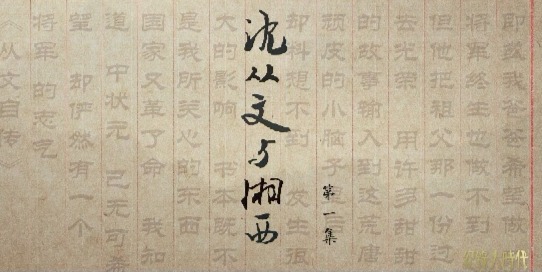 沈从文与湘西
第一集
即以我爸爸希望做
将军终生也做不到
但他把祖父那一份过
去光荣 用许多甜甜
的故事输入到这荒唐
顽皮的小脑子
却料想不到 发生很
大的影响 书本既不
是我所关心的东西
国家又革了命 我知
道 中状元 已无可希
望 却俨然有 个
将军 的志气
《从文自传